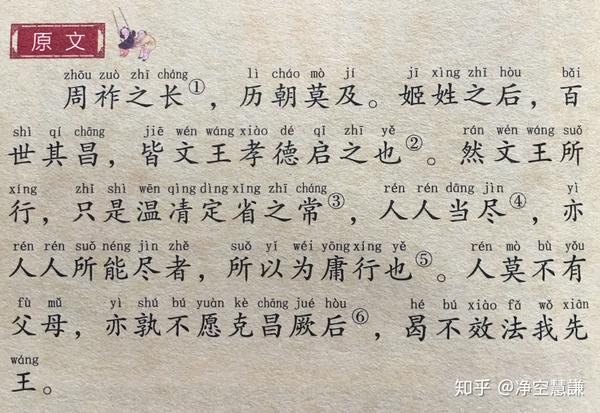 原文
zhōu zuò zhī cháng lì cháo mò jí jī xìng zhī hòu bǎi
周祚之长①，历朝莫及。姬姓之后，百
shì qí chāng jiē wén wáng xiào dé qǐ zhī yě rán wén wáng suǒ
世其昌，皆文王孝德启之也②。然文王所
xíng zhǐ shì wēn qìng dìng xǐng zhī cháng rén rén dāng jìn yì
行，只是温凊定省之常③，人人当尽④，亦
rén rén suǒ néng jìn zhě suǒ yǐ wéi yōng xíng yě rén mò bù yǒu
人人所能尽者，所以为庸行也⑤。人莫不有
fù mǔ yì shú bú yuàn kè chāng jué hòu hé bú xiào fǎ wǒ xiān
父母，亦孰不愿克昌厥后⑥，曷不效法我先
wáng
王。
知乎 @净空慧謙